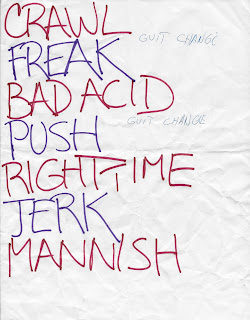 CRAWL
GUIT CHANGE
FREAK
BAD ACID
GUIT CHANGE
PUSH
RIGHT TIME
JERK
MANNISH